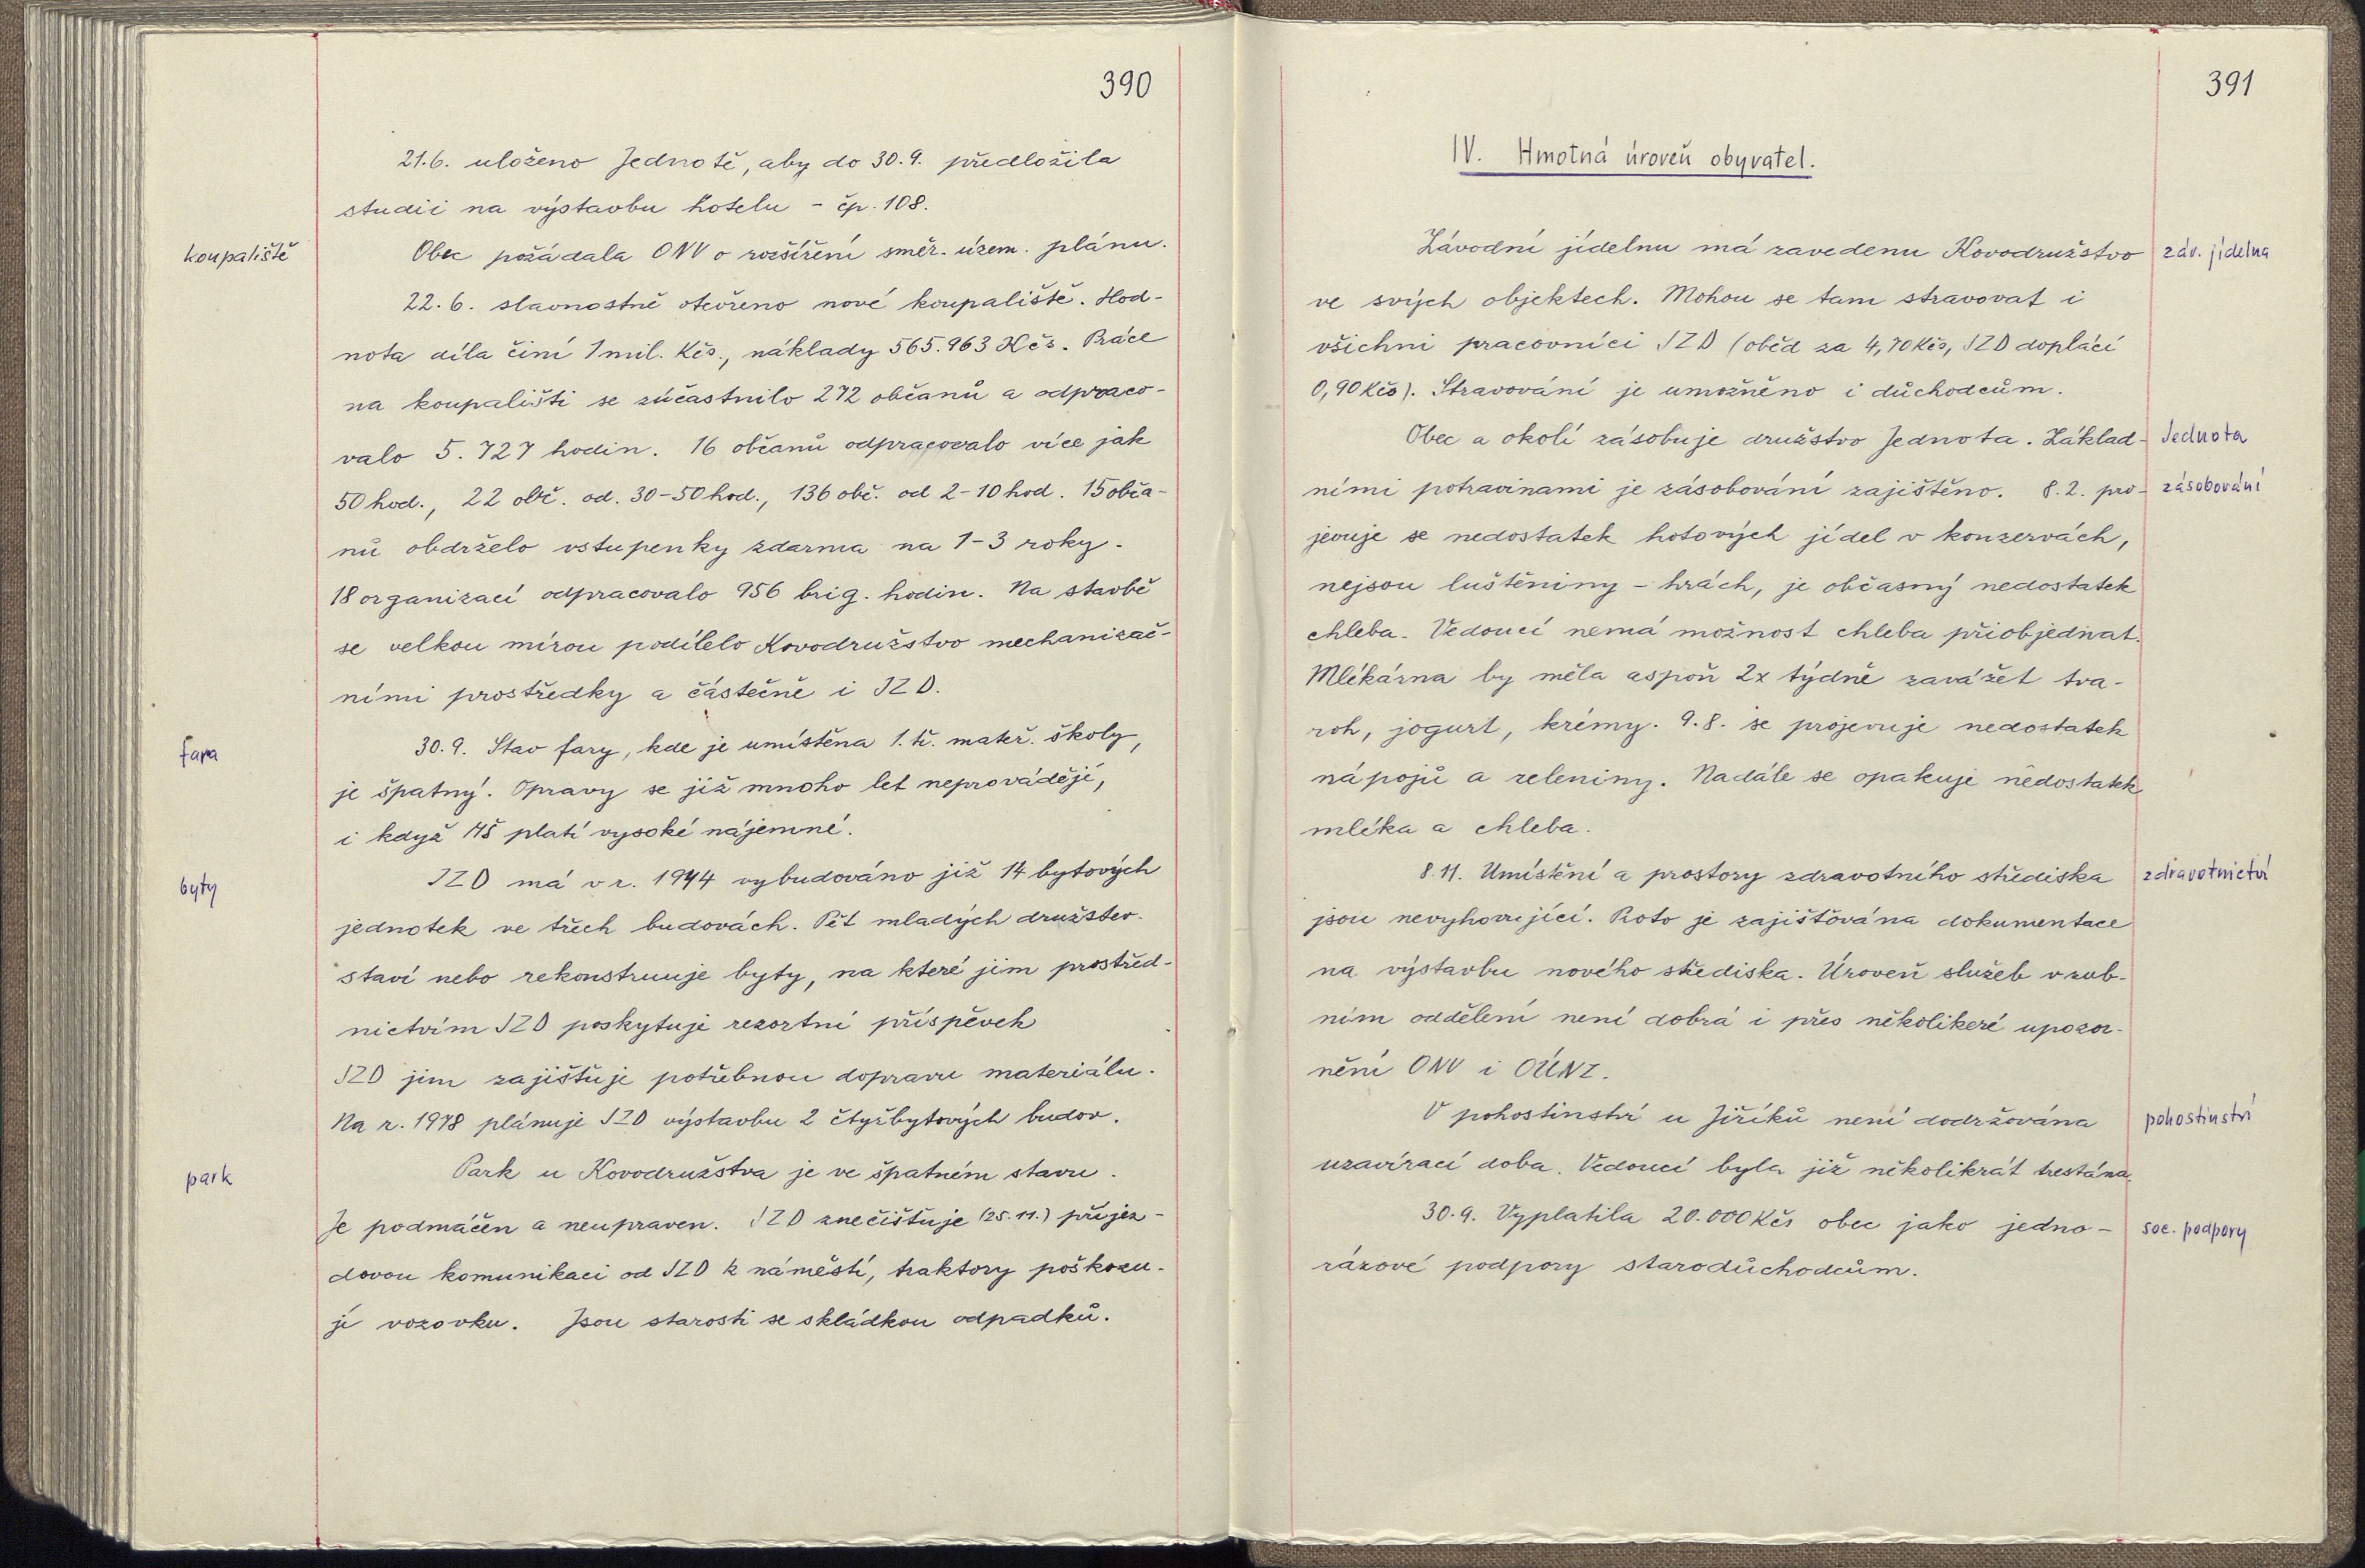 390
21.6. uloženo Jednotě, aby do 30.9. předložila
studii na výstavbu hotelu - čp. 108.
koupaliště
Obec požádala ONV o rozšíření směr. územ. plánu.
22.6. slavnostně otevřeno nové koupaliště. Hod-
nota díla činí 1 mil. Kčs., náklady 565.963 Kčs. Práce
na koupališti se zúčastnilo 272 občanů a odpraco-
valo 5.727 hodin. 16 občanů odpracovalo více jak
50 hod., 22 obč. od. 30-50 hod., 136 obč. od 2-10 hod. 15 obča-
nů obdrželo vstupenky zdarma na 1-3 roky.
18 organizací odpracovalo 956 brig. hodin. Na stavbě
se velkou mírou podílelo Kovodružstvo mechanizač-
ními prostředky a částečně i JZD.
fara
30.9. Stav fary, kde je umístěna 1. tř. mateř. školy,
je špatný. Opravy se již mnoho let neprovádějí,
i když MŠ platí vysoké nájemné.
byty
JZD má v r. 1977 vybudováno již 14 bytových
jednotek ve třech budovách. Pět mladých družstev.
staví nebo rekonstruuje byty, na které jim prostřed-
nictvím JZD poskytuje rezortní příspěvek
JZD jim zajištuje potřebnou dopravu materiálu.
Na r. 1978 plánuje JZD výstavbu 2 čtyřbytových budov.
park
Park u Kovodružstva je ve špatném stavu.
Je podmáčen a neupraven. JZD znečištuje (25.11.) příjez-
dovou komunikaci od JZD k náměstí, traktory poškozu-
jí vozovku. Jsou starosti se skládkou odpadků.
391
IV. Hmotná úroveň obyvatel.
Závodní jídelnu má zavedenu Kovodružstvo
záv. jídelna
ve svých objektech. Mohou se tam stravovat i
všichni pracovníci JZD (oběd za 4,70 Kčs, JZD doplácí
0,90 Kčs). Stravování je umožněno i důchodcům.
Obec a okolí zásobuje družstvo Jednota. Základ-
Jednota
ními potravinami je zásobování zajištěno. 8.2. pro-
zásobování
jevuje se nedostatek hotových jídel v konzervách,
nejsou luštěniny - hrách, je občasný nedostatek
chleba. Vedoucí nemá možnost chleba přiobjednat.
Mlékárna by měla aspoň 2x týdně zavážet tva-
roh, jogurt, krémy. 9.8. se projevuje nedostatek
nápojů a zeleniny. Nadále se opakuje nedostatek
mléka a chleba.
8.11. Umístění a prostory zdravotního střediska
zdravotnictví
jsou nevyhovující. Proto je zajišťována dokumentace
na výstavbu nového střediska. Úroveň služeb v zub-
ním oddělení není dobrá i přes několikeré upozor-
nění ONV i OÚNZ.
V pohostinství u Jiříků není dodržována
pohostinství
uzavírací doba. Vedoucí byla již několikrát trestána.
30.9. Vyplatila 20.000 Kčs obec jako jedno-
soc. podpory
rázové podpory starodůchodcům.